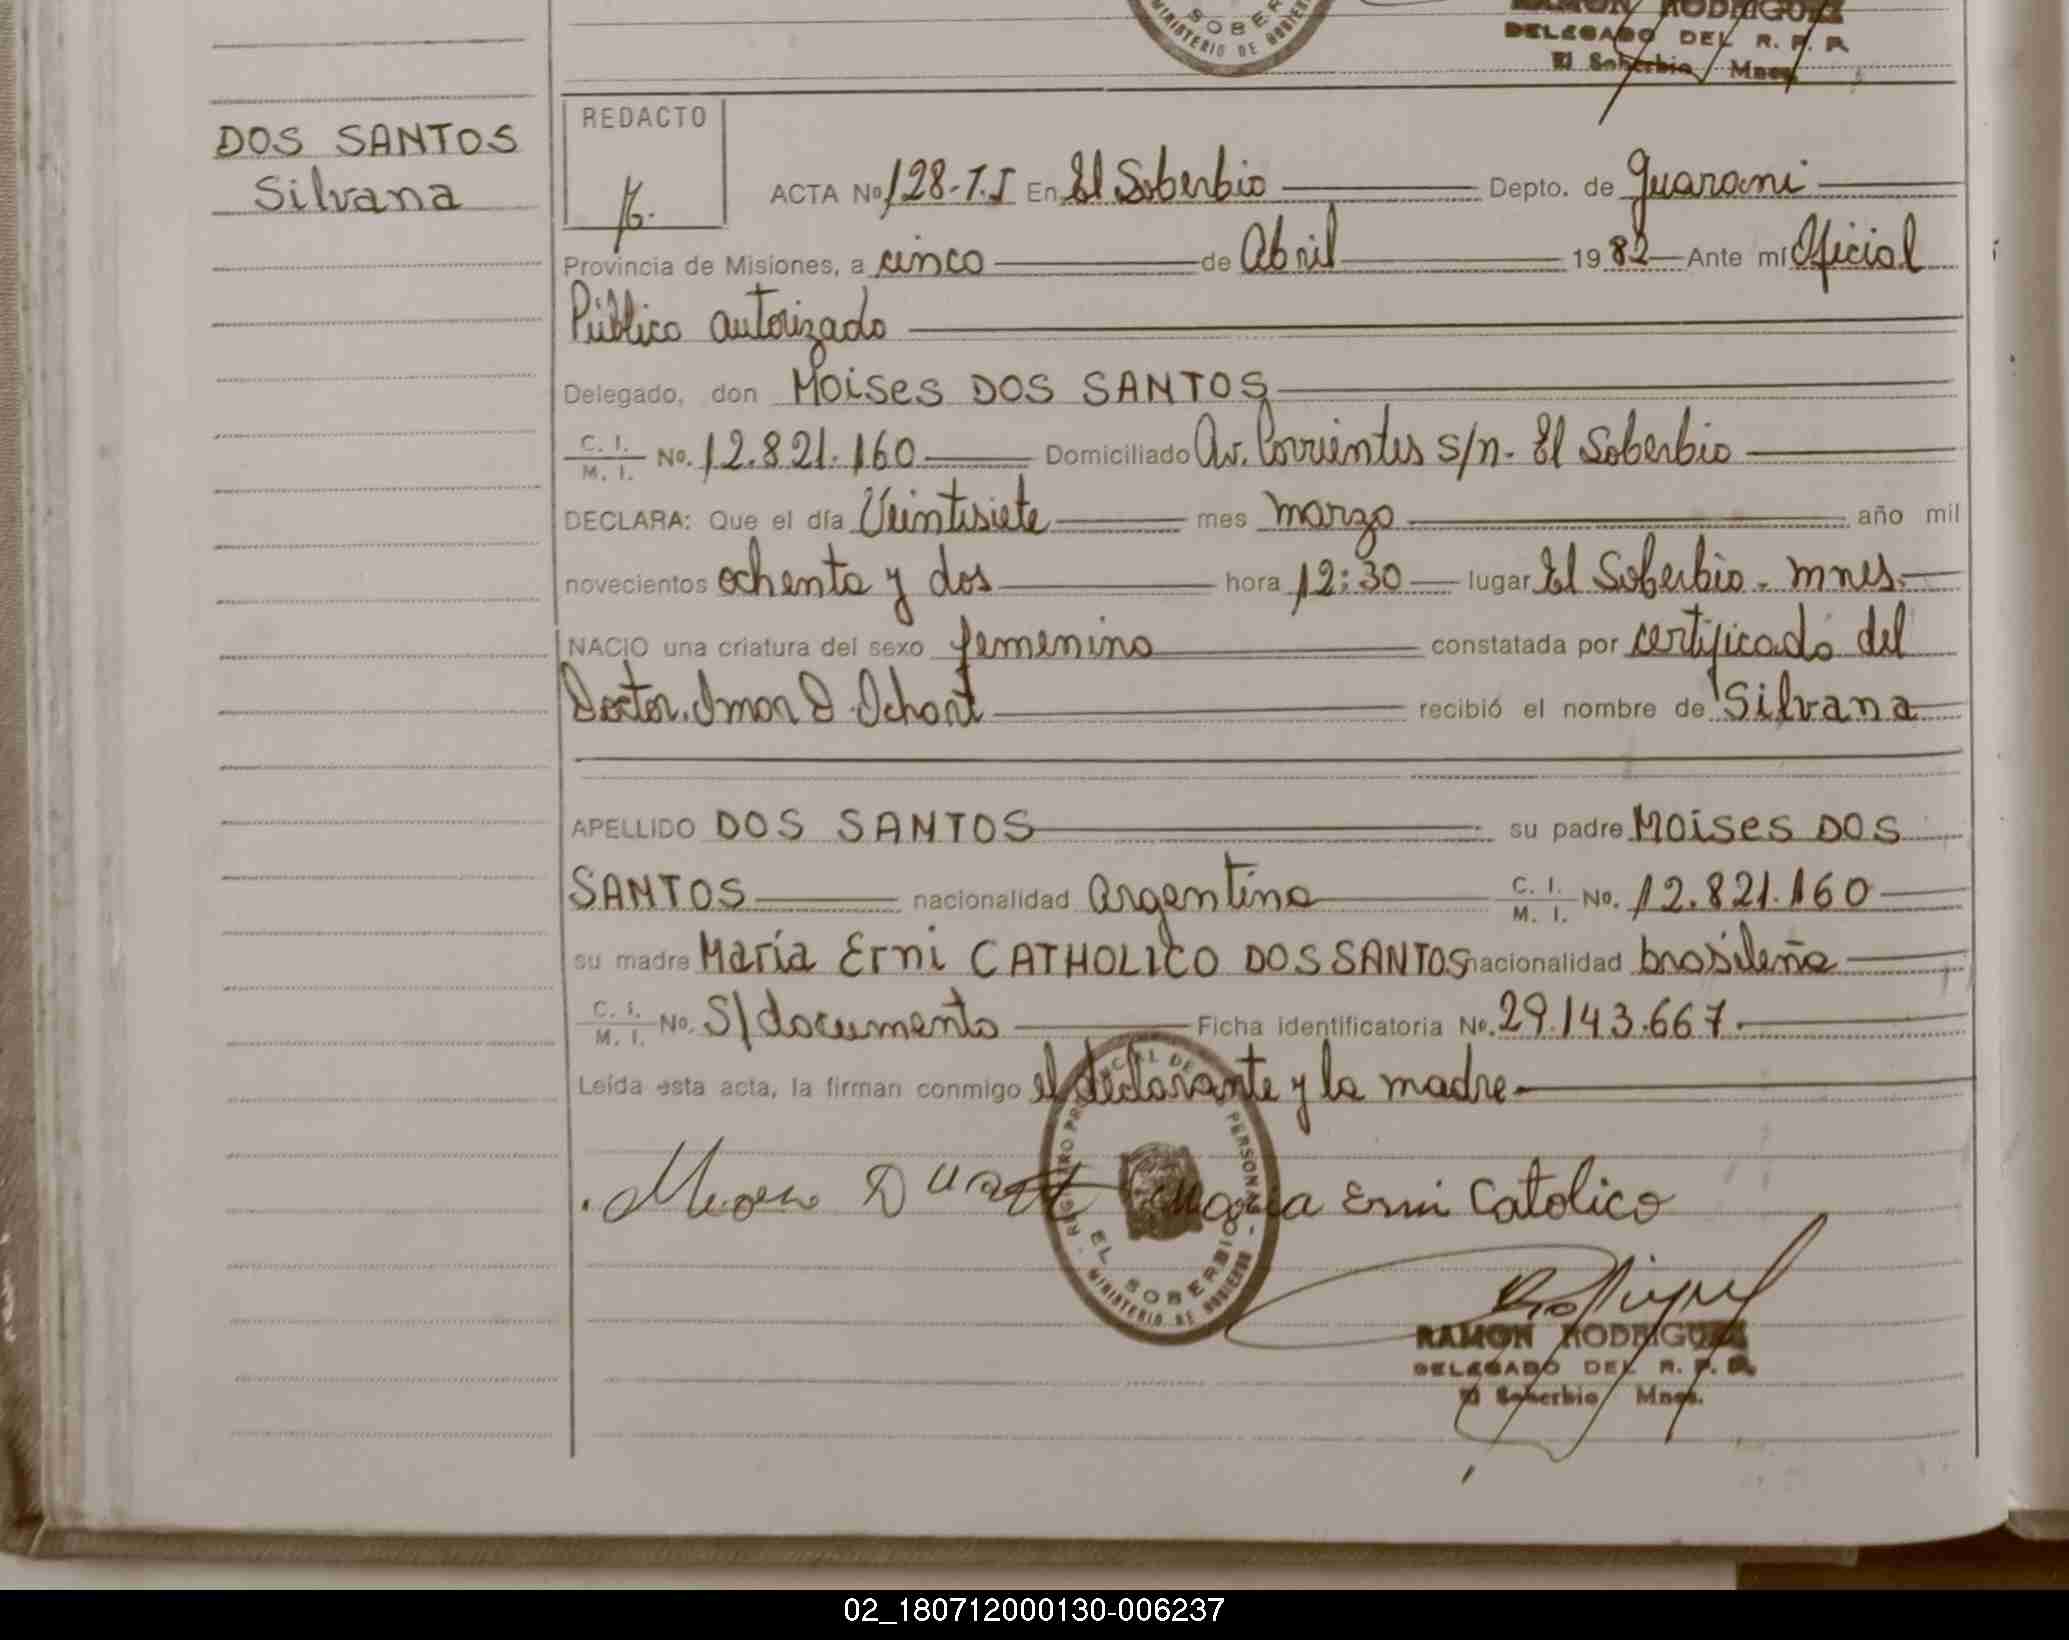 RAMON RODRIGUEZ
DELEGADO DEL R. P. P.
El Soberbio Mnes.
SOBER
MINISTERIO DE GOBIERNO
DOS SANTOS
Silvana
REDACTO
ACTA No 128-T.I En El Soberbio Depto. de Guarani
Provincia de Misiones, a cinco de Abril 1982 Ante mí Oficial
Público autorizado
Delegado, don Moises DOS SANTOS
C. I. / M. I. No. 12.821.160 Domiciliado Av. Corrientes s/n. El Soberbio
DECLARA: Que el día Veintisiete mes marzo año mil
novecientos ochenta y dos hora 12:30 lugar El Soberbio - mnes.
NACIO una criatura del sexo femenino constatada por certificado del
Doctor. recibió el nombre de Silvana
APELLIDO DOS SANTOS su padre Moises DOS
SANTOS nacionalidad argentina C. I. / M. I. No. 12.821.160
su madre María Erni CATHOLICO DOS SANTOS nacionalidad brasileña
C. I. / M. I. No. S/documento Ficha identificatoria No. 29.143.667.
Leída esta acta, la firman conmigo el declarante y la madre
Maria Erni Catolico
EL SOBERBIO
MINISTERIO DE GOBIERNO
RAMON RODRIGUEZ
DELEGADO DEL R. P. P.
El Soberbio Mnes.
02_180712000130-006237